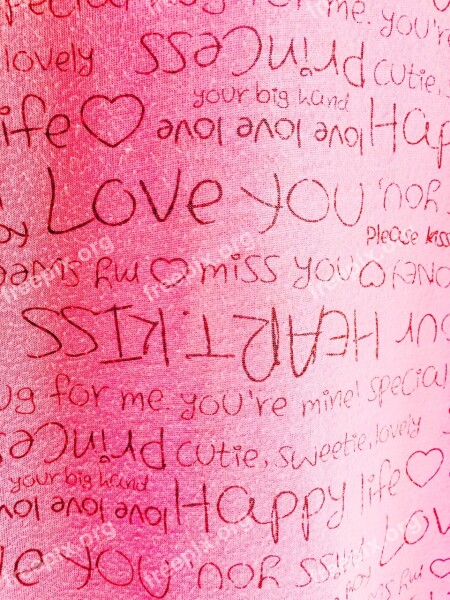 special hug for me. you're
lovely princess cutie,
your big hand
life ♡ love love love Hap
Love you you
Please kiss
my sweet ♡ miss you ♡ honey
HEART.KISS
ug for me. you're mine! special
princess cutie, sweetie, lovely
your big hand
love love love Happy life ♡
e you you kiss Lov
my ♡